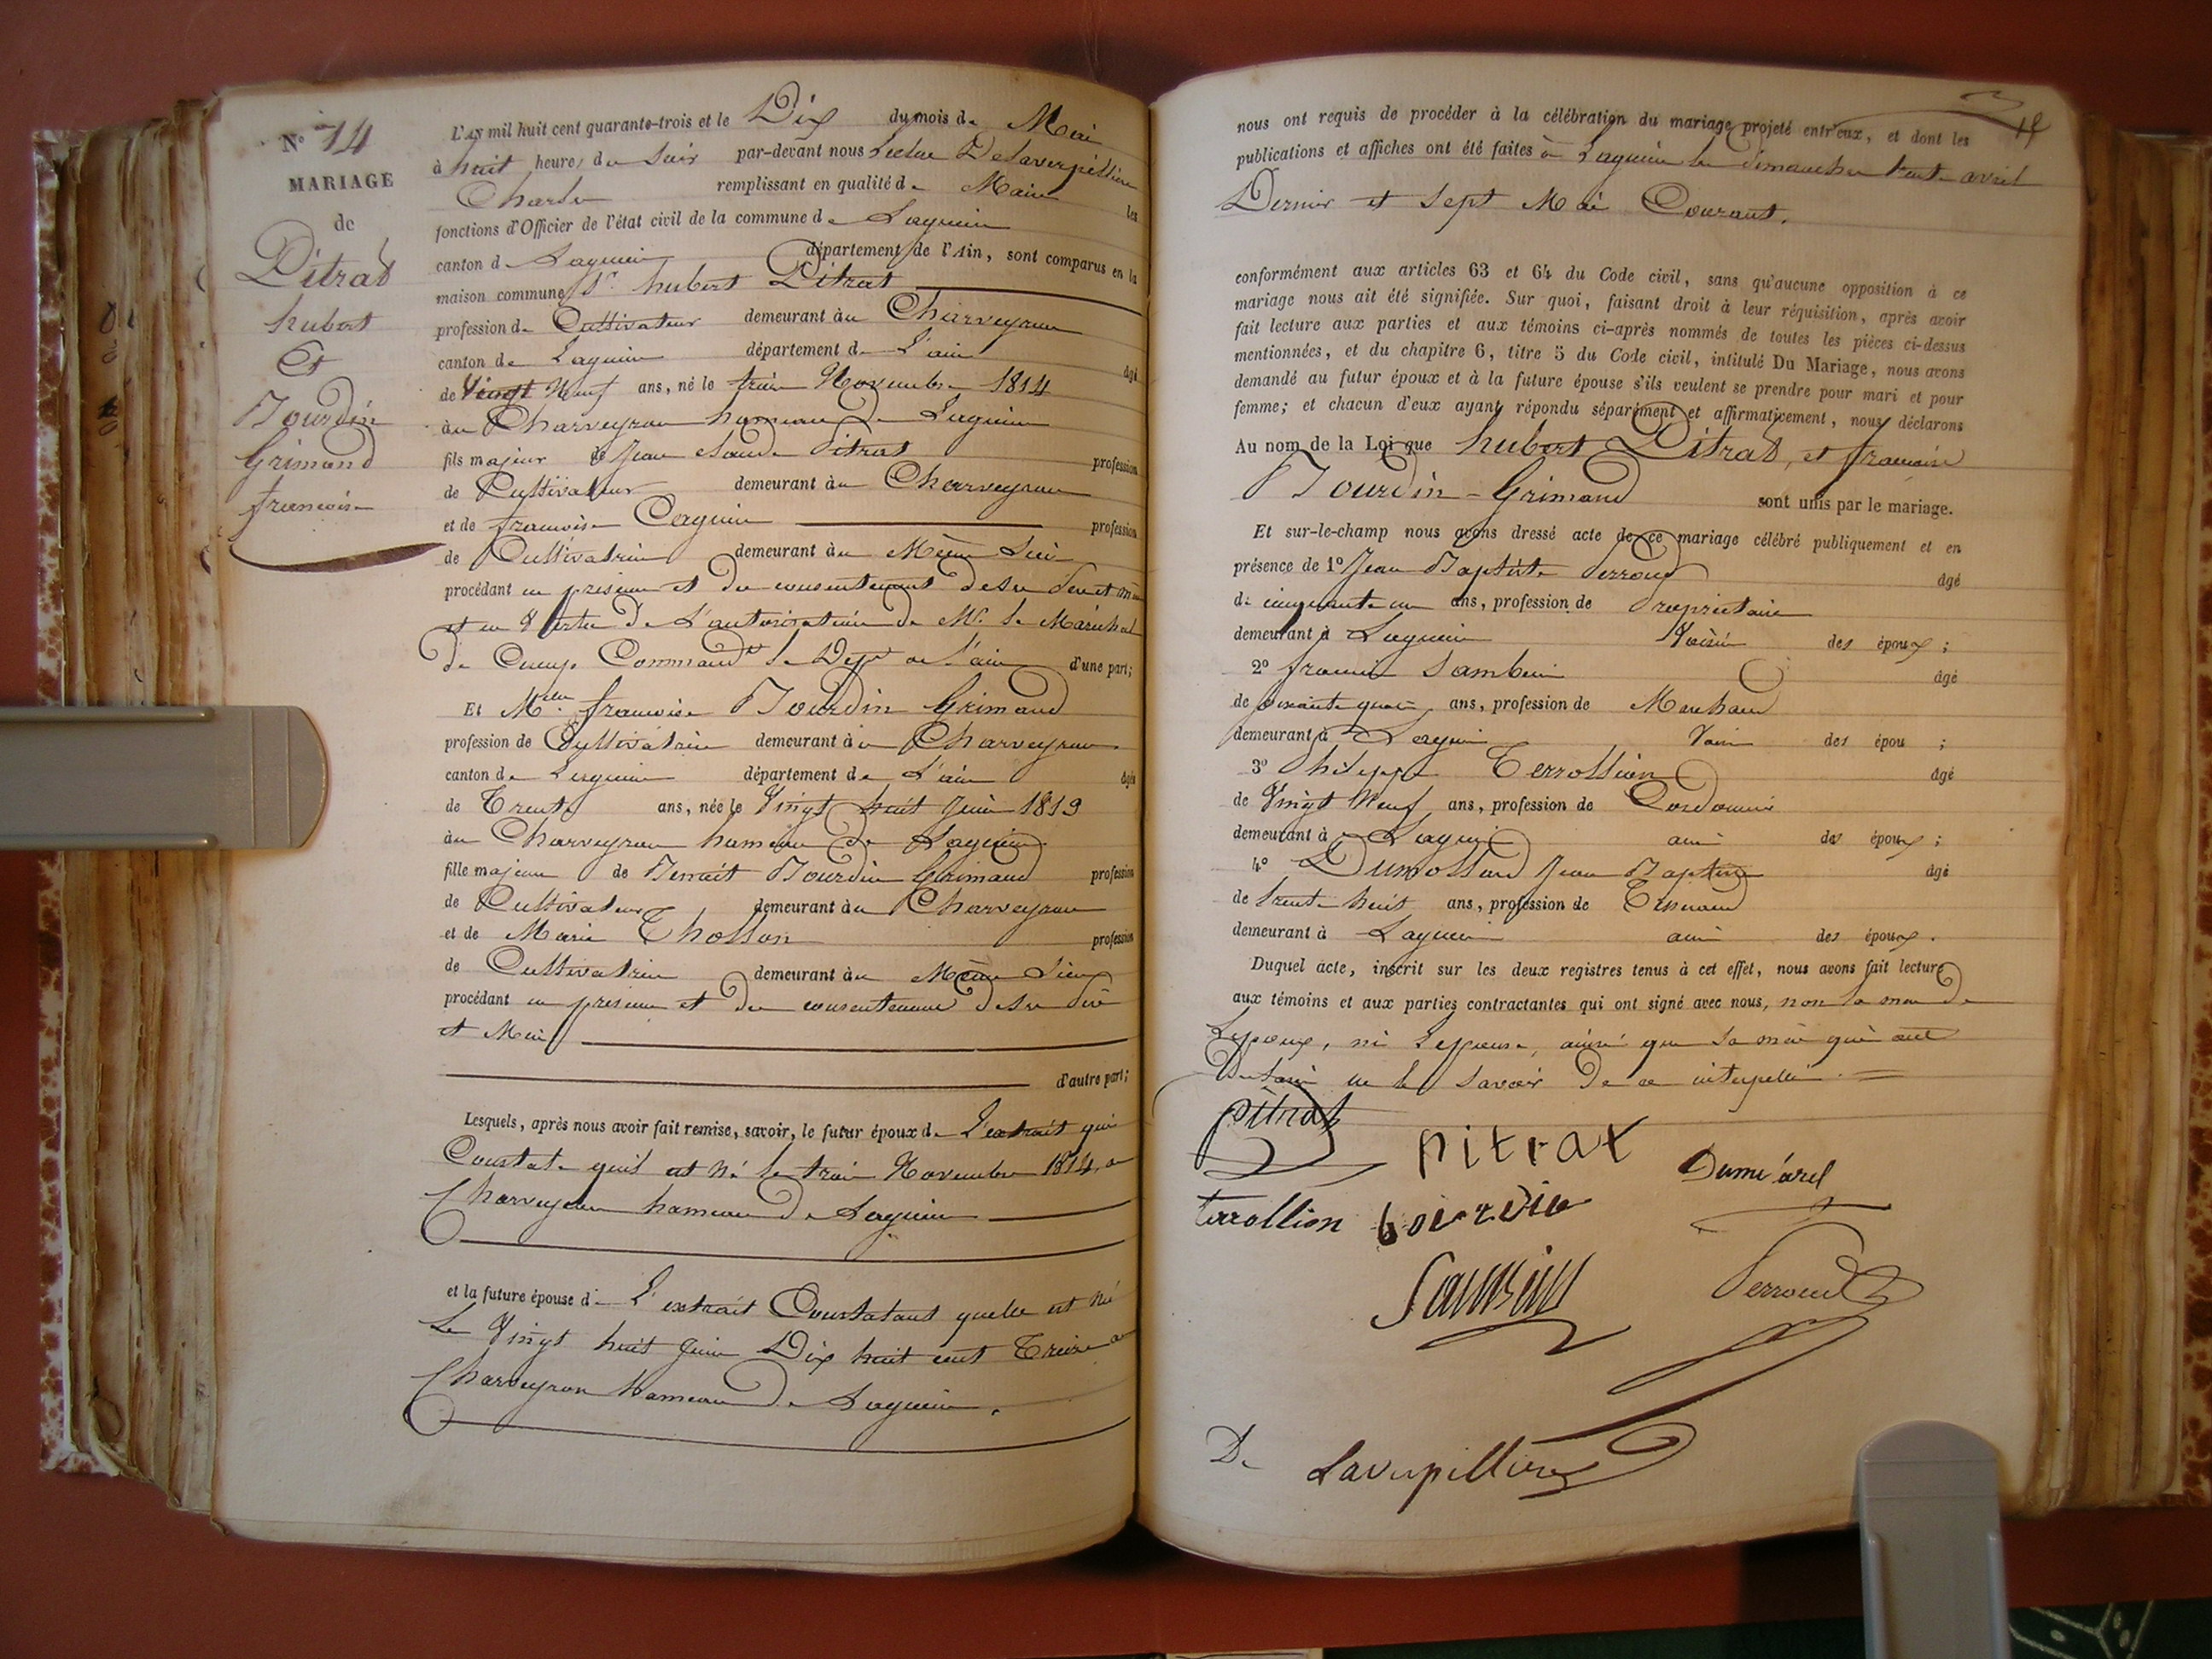 N.o 14
MARIAGE
de
Pitrat
hubert
Et
Bourdin
Grimand
francoise
L'an mil huit cent quarante-trois et le Dix du mois de Mai
à huit heures du Soir par-devant nous Delaverpillière
Charles remplissant en qualité de Maire les
fonctions d'Officier de l'état civil de la commune de Lagnieu
canton de Lagnieu département de l'Ain, sont comparus en la
maison commune Sr. hubert Pitrat
profession de Cultivateur demeurant au Charveyron
canton de Lagnieu département de L'ain âgé
de Vingt Neuf ans, né le trois Novembre 1814
au Charveyron hameau de Lagnieu
fils majeur de Jean Claude Pitrat profession
de Cultivateur demeurant au Charveyron
et de francoise profession
de Cultivatrice demeurant au Même Lieu
procédant en presence et du consentement de Ses Pere et m
et en Vertu De L'autorisation de Mr. le Maréchal
de Camp Commandt le Dept de l'ain d'une part;
Et Melle francoise Bourdin Grimand
profession de Cultivatrice demeurant au Charveyron
canton de Lagnieu département de L'ain âgée
de Trente ans, née le Vingt huit Juin 1813
au Charveyron hameau de Lagnieu
fille majeure de Benoit Bourdin Grimand profession
de Cultivateur demeurant au Charveyron
et de Marie Chollon profession
de Cultivatrice demeurant au Même Lieu
procédant en presence et du consentement de Ses Père
et Mere
d'autre part;
Lesquels, après nous avoir fait remise, savoir, le futur époux de L'extrait qui
Constate quil est Né le trois Novembre 1814, a
Charveyron hameau de Lagnieu
et la future épouse de L'extrait Constatant quelle est Né
Le Vingt huit Juin Dix huit cent Treize a
Charveyron hameau de Lagnieu.
nous ont requis de procéder à la célébration du mariage projeté entr'eux, et dont les
publications et affiches ont été faites à Lagnieu les dimanches trente avril
Dernier et Sept Mai Courant.
conformément aux articles 63 et 64 du Code civil, sans qu'aucune opposition à ce
mariage nous ait été signifiée. Sur quoi, faisant droit à leur réquisition, après avoir
fait lecture aux parties et aux témoins ci-après nommés de toutes les pièces ci-dessus
mentionnées, et du chapitre 6, titre 5 du Code civil, intitulé Du Mariage, nous avons
demandé au futur époux et à la future épouse s'ils veulent se prendre pour mari et pour
femme; et chacun d'eux ayant répondu séparément et affirmativement, nous déclarons
Au nom de la Loi que hubert Pitrat, et francoise
Bourdin-Grimand sont unis par le mariage.
Et sur-le-champ nous avons dressé acte de ce mariage célébré publiquement et en
présence de 1o Jean Baptiste Perroud âgé
de cinquante un ans, profession de Proprietaire
demeurant à Lagnieu Voisin des époux;
2o francois Sambuin âgé
de soixante quatre ans, profession de Marchand
demeurant à Lagnieu Voisin des épou ;
3o Philippe Terrollion âgé
de Vingt Neuf ans, profession de Cordonnier
demeurant à Lagnieu ami des époux;
4o Dumollard Jean Baptiste âgé
de trente huit ans, profession de Tisserand
demeurant à Lagnieu ami des époux.
Duquel acte, inscrit sur les deux registres tenus à cet effet, nous avons fait lecture
aux témoins et aux parties contractantes qui ont signé avec nous, non la mere de
Lepoux, ni Lepouse, ainsi que Sa mère qui ont
ne le savoir De ce interpellé.
pitrat
pitrat
terrollion
Sambuin
Perroud
De Laverpillière